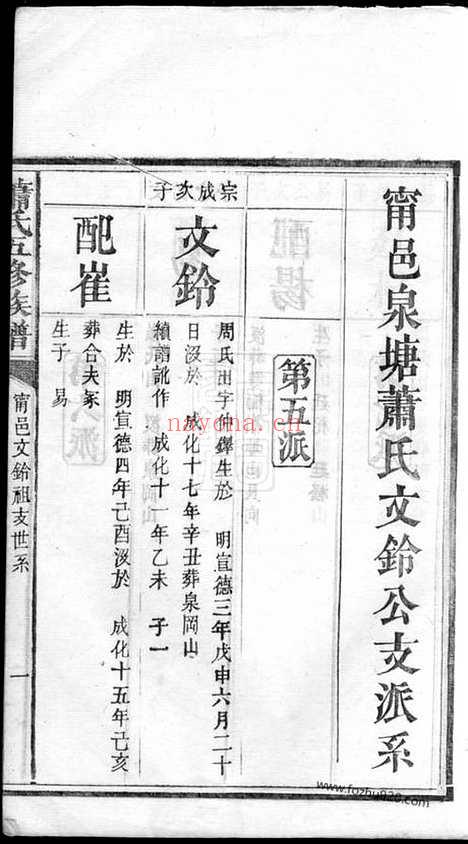 甯邑泉塘蕭氏文鈴公支派系
第五派
宗成次子
文鈴
周氏出字仲鐸生於 明宣德三年戊申六月二十
日沒於 成化十七年辛丑葬泉岡山
續譜訛作 成化十一年乙未 子一
易
配崔
生於 明宣德四年己酉沒於 成化十五年己亥
葬合夫冢
生子 易
蕭氏五修族譜
甯邑文鈴祖支世系
一
nayona.cn
www.fozhu920.com